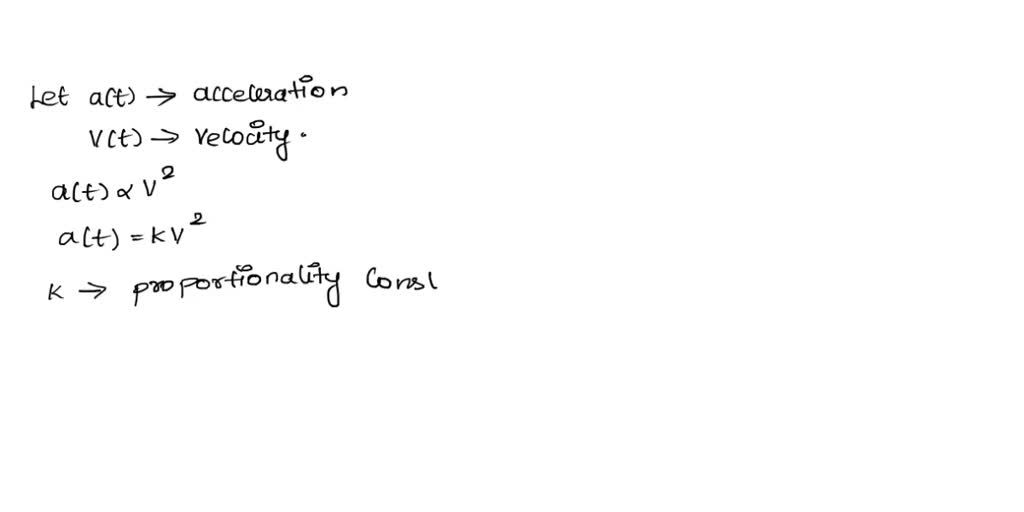 Let a(t) → acceleration
V(t) → velocity.
a(t) ∝ V²
a(t) = KV²
K → proportionality Const